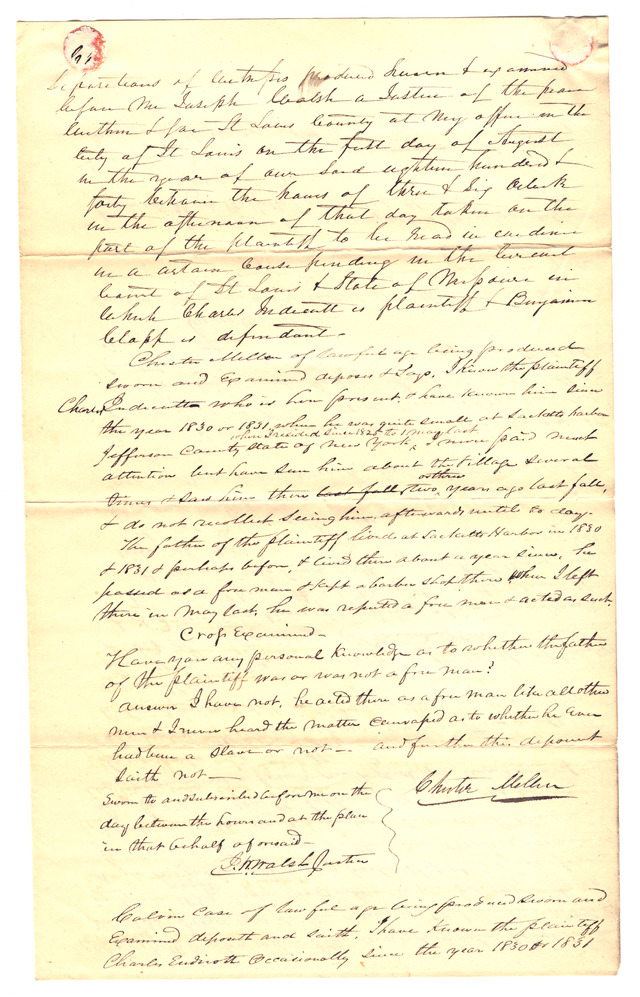 Depositions of Witness produced sworn & examined
before me Joseph Walsh a Justice of the peace
Within & for St Louis County at my office in the
City of St Louis on the first day of August
in the year of our Lord eighteen hundred &
forty between the hours of three & Six Oclock
in the afternoon of that day taken on the
part of the plaintiff to be read in evidence
in a certain Cause pending in the Circuit
Court of St Louis & State of Missouri in
Which Charles Endicott is plaintiff & Benjamin
Clapp is defendant.
Chester Mellen of lawful age being produced
sworn and Examined deposes & Says. I know the plaintiff
Charles Endicott who is here present & have known him since
the year 1830 or 1831, when he was quite small at Sacketts harbor
when I resided since 1825 to 1 may last
Jefferson County State of New York, I never paid much
attention but have seen him about the Village several
or three
times & saw him there last fall, two years ago last fall,
& do not recollect seeing him, afterwards until to day.
The father of the plaintiff lived at Sacketts Harbor in 1830
& 1831 & perhaps before, & lived there about a year since, he
passed as a free man & kept a barber shop there, when I left
there in May last, he was reputed a free man & acted as such.
Cross Examined—
Have you any personal knowledge as to whether the father
of the plaintiff was or was not a free man?
answer I have not, he acted there as a free man like all other
men & I never heard the matter canvassed as to whether he Ever
had been a slave or not— and further this deponent
saith not—
Chester Mellen
Sworn to and subscribed before me on the
day between the hours and at the place
in that behalf aforesaid—
J. W. Walsh Justice
Calvin Case of lawful age being produced sworn and
Examined deposeth and saith, I have known the plaintiff
Charles Endicott Occasionally since the year 1830 or 1831